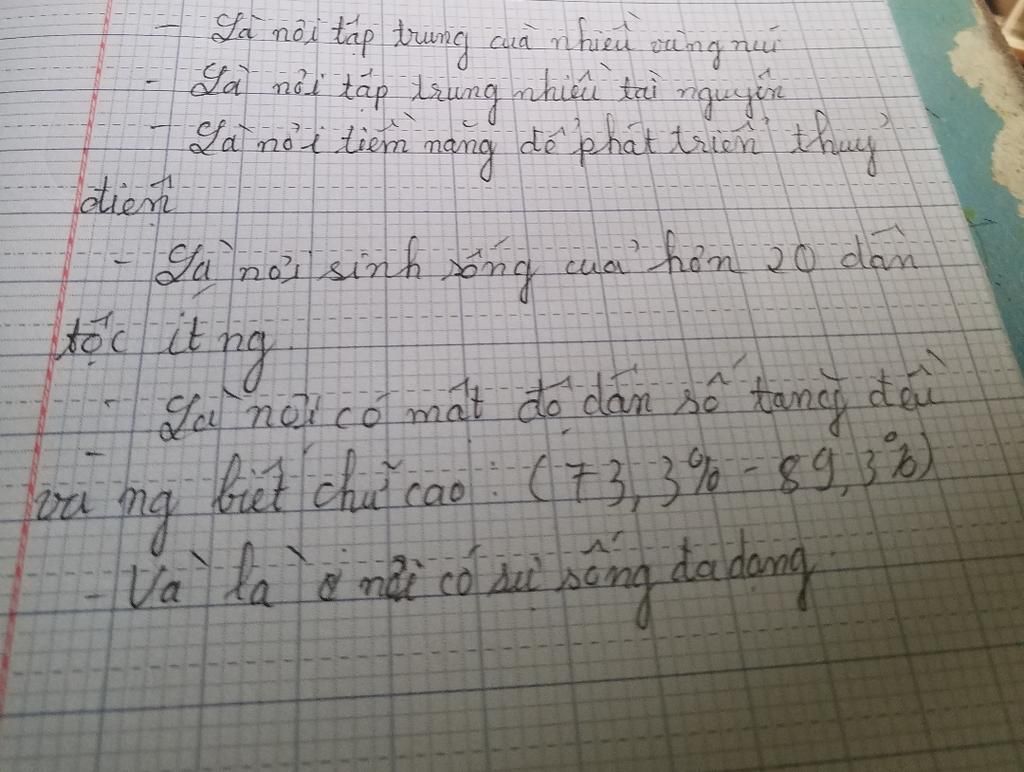 - Là nơi tập trung của nhiều vùng núi
- Là nơi tập trung nhiều tài nguyên
- Là nơi tiềm năng để phát triển thuỷ
điện
- Là nơi sinh sống của hơn 20 dân
tộc ít ng
- Là nơi có mật độ dân số tăng đều
và ng biết chữ cao : (73,3% - 89,3%)
- Và là nơi có sự sống đa dạng